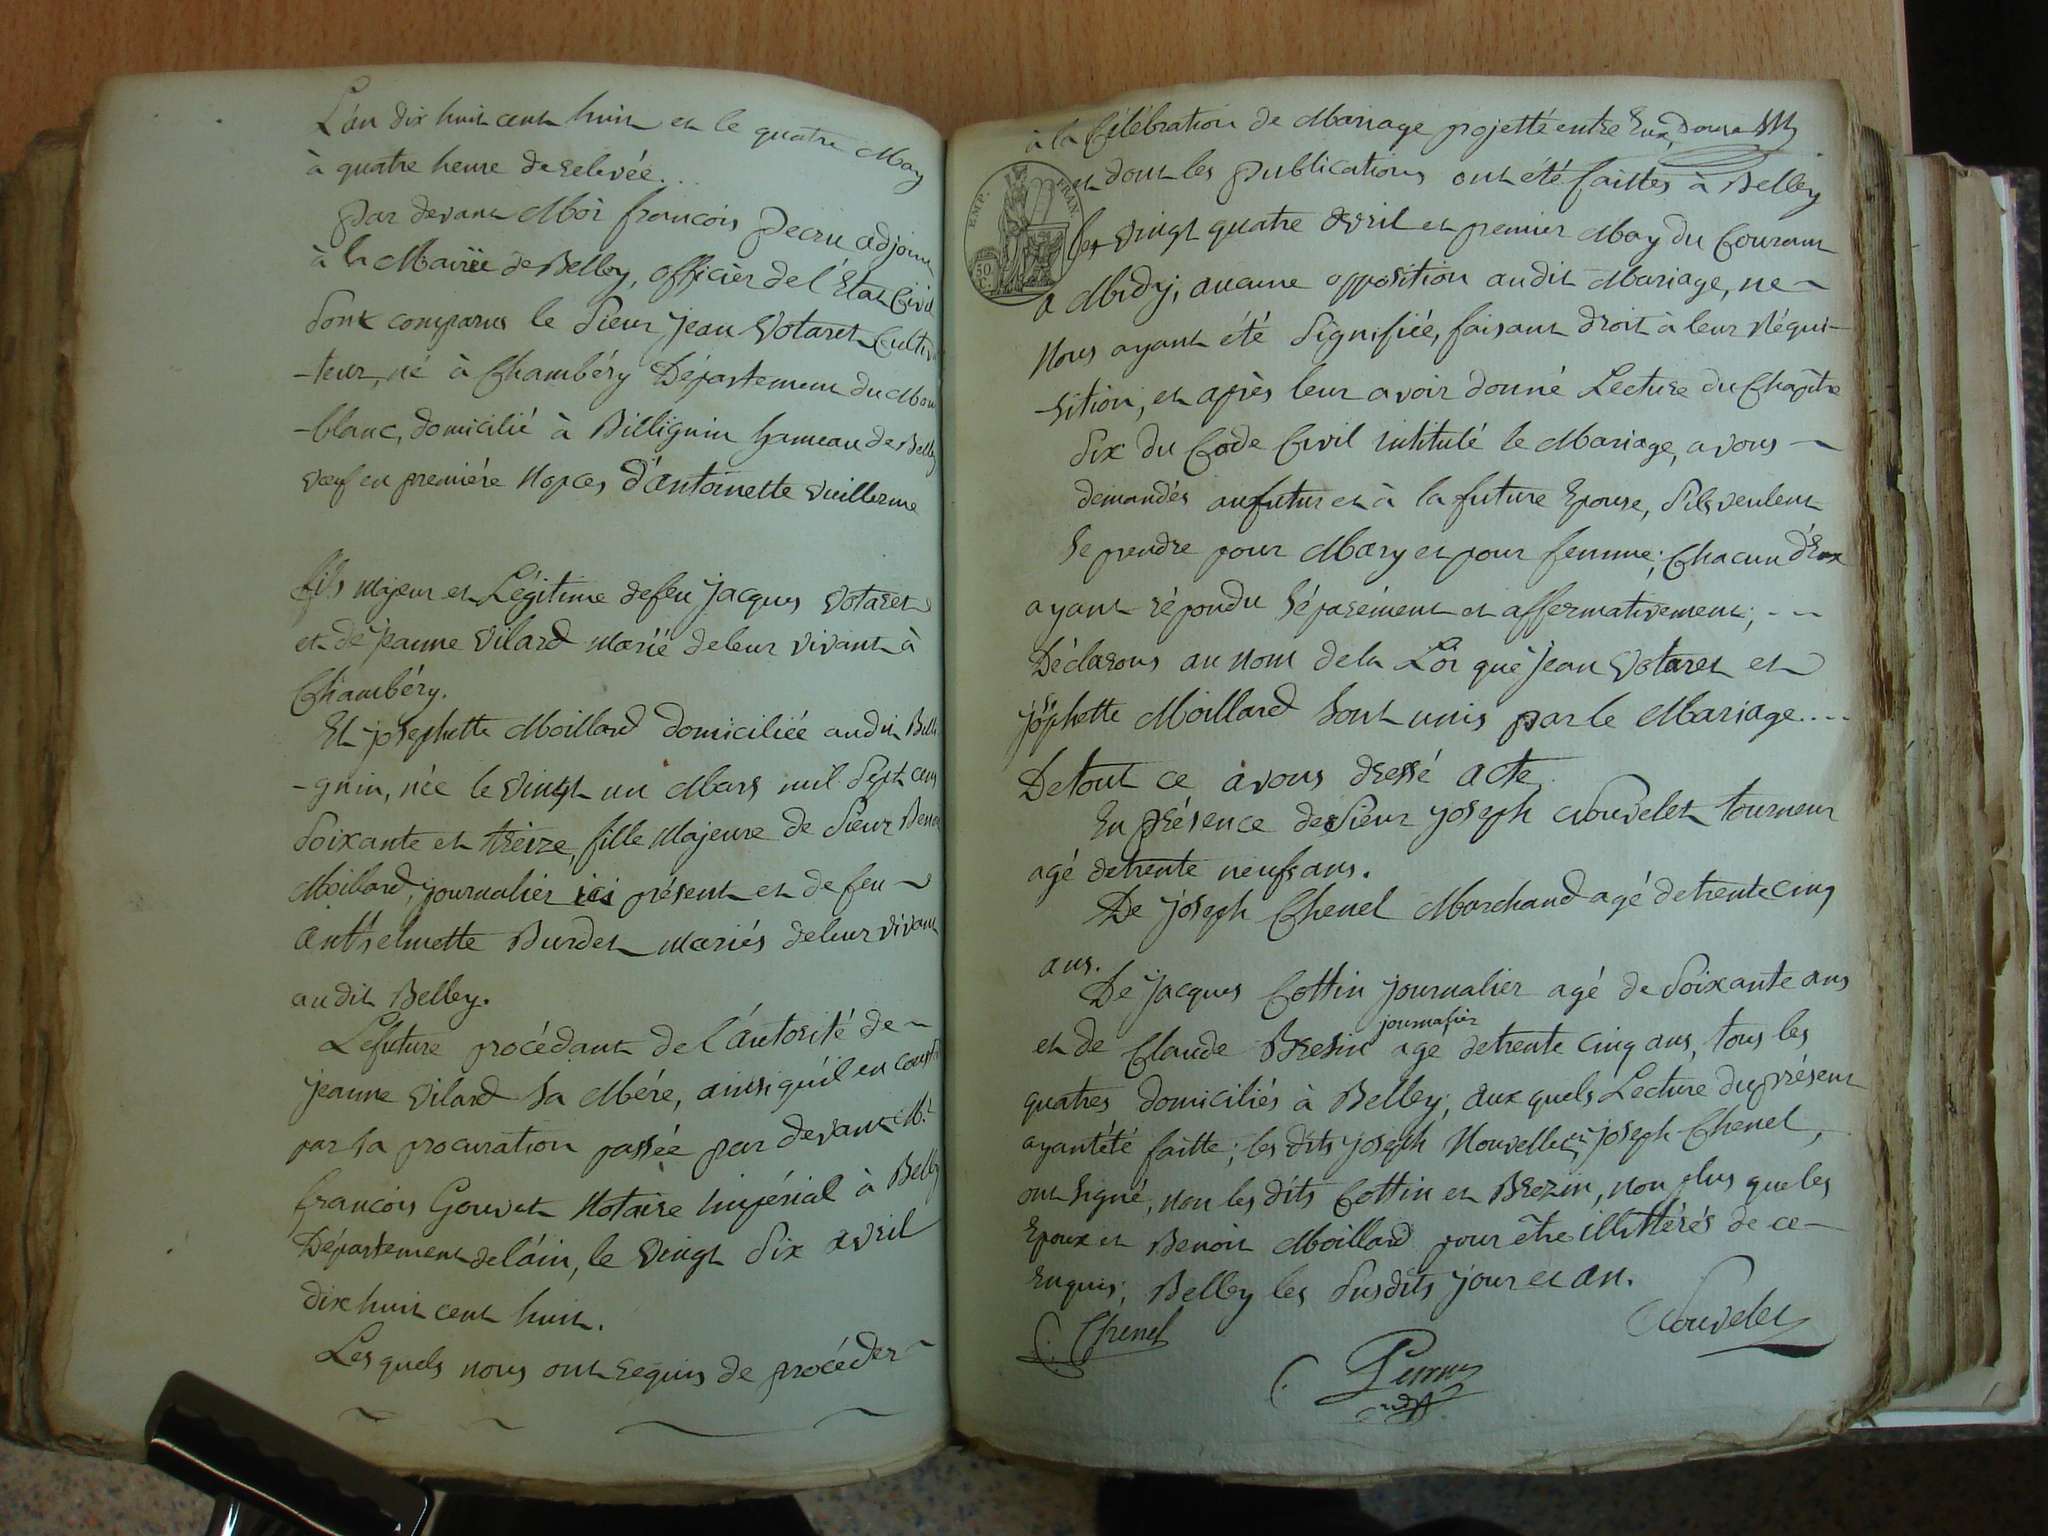 L'an dix huit cent huit et le quatre May
à quatre heure de relevée...
par devant Moi françois Pecru adjoint
à la Mairie de Belley, officier de l'Etat Civil
sont comparus le Sieur jean Votaret Cultiva
-teur, né à Chambéry Département du Mon
-blanc, domicilié à Billignin hameau de Belley
vœuf en première Nopces d'antoinette vuillerme
fils majeur et Légitime de feu jacques Votaret
et de jeanne vilard marié de leur vivant à
Chambéry.
Et josephette Moillard domiciliée au dit Billi
-gnin, née le vingt un Mars mil sept cent
soixante et treize, fille Majeure de sieur Benoi
Moillard, journalier ici présent et de feu
Ant'selmette Burdet mariés de leur vivant
au dit Belley.
Le future procédant de l'autorité de
jeanne vilard sa Mére, ainsi qu'il en conste
par la procuration passée par devant Mr
françois Gouvet Notaire impérial à Belley
Département de l'ain, le vingt six avril
dix huit cent huit.
Les quels nous ont requis de procéder
à la Célébration de Mariage projetté entre Eux,
EMP. FRAN.
50 C.
et dont les publications ont été faittes à Belley
les vingt quatre avril et premier May du Courant
a Midy, aucune opposition au dit Mariage, ne
Nous ayant été signifiée, faisant droit à leur Réqui-
-sition, et après leur avoir donné Lecture du Chapitre
six du Code Civil intitulé le Mariage, avons
demandés au futur et à la future Epouse, s'ils veulent
se prendre pour Mary et pour femme; Chacun d'Eux
ayant répondu séparément et affermativement; - - -
Déclarons au nom de la Loi que jean Votaret et
josephette Moillard sont unis par le Mariage....
De tout ce avons dressé acte
En présence de sieur joseph Nouvelet tourneur
agé de trente neufs ans.
De joseph Chenel Marchand agé de trente cinq
ans.
De jacques Cottin journalier agé de soixante ans
journalier
et de Claude Bresin agé de trente cinq ans, tous les
quatres domiciliés à Belley, aux quels Lecture du présent
ayant été faitte; les dits joseph Nouvellet, joseph Chenel,
ont signé, non les dits Cottin et Brezin, non plus que les
Epoux et Benoit Moillard pour être illittérés de ce
Enquis; Belley les susdits jour et an.
Chenel
Nouvelet